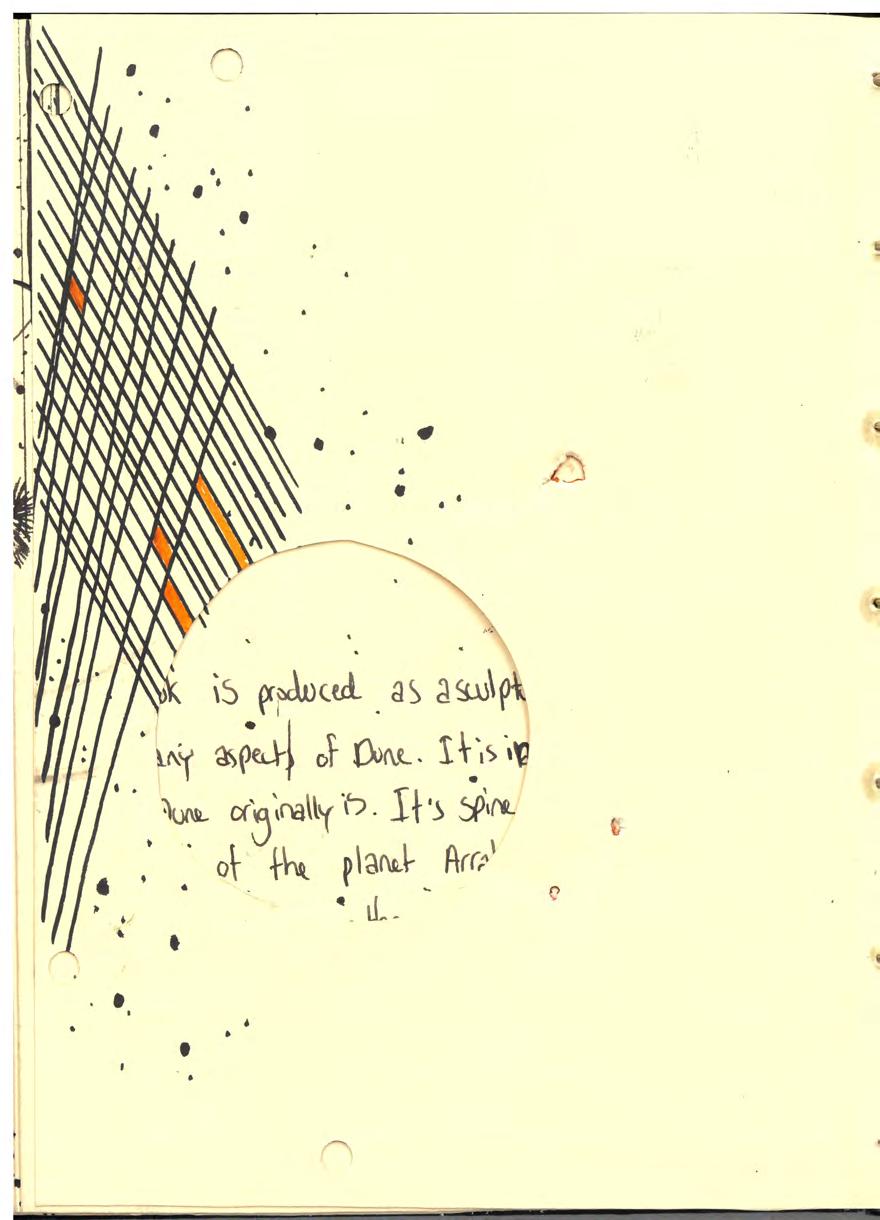 is produced as a sculpt
aspects of Dune. It is in
Dune originally is. It's spine
of the planet Arra